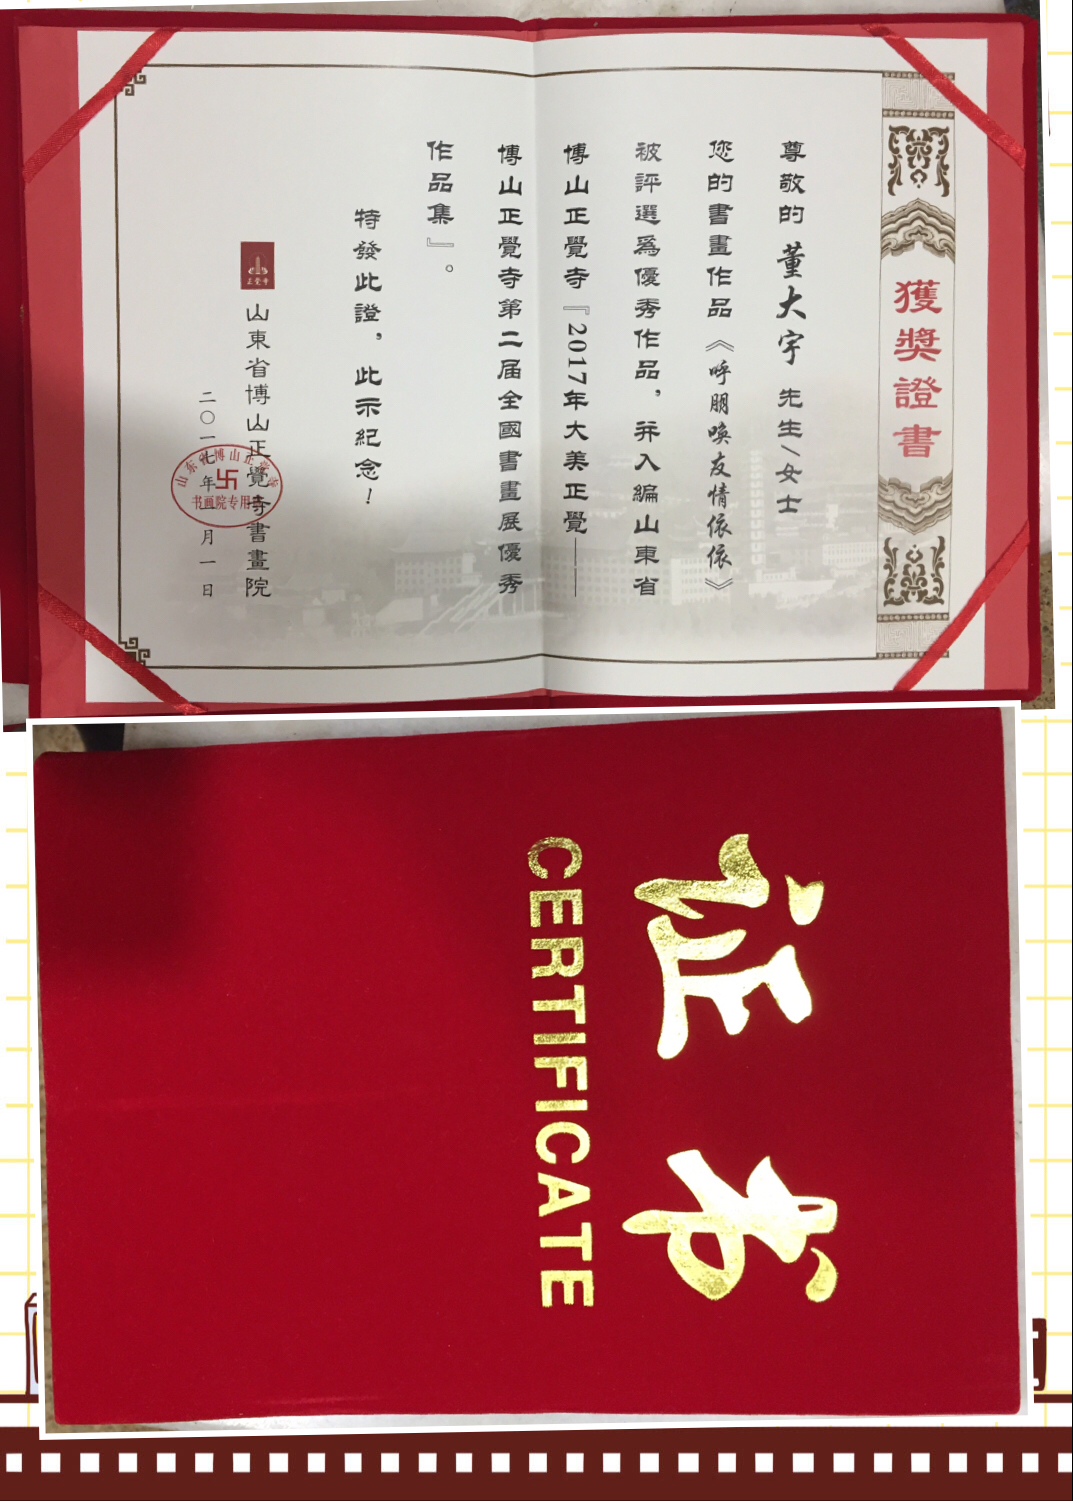 獲奬證書
尊敬的 董大宇 先生/女士
您的書畫作品《呼朋喚友情依依》
被評選爲優秀作品，并入編山東省
博山正覺寺『2017年大美正覺——
博山正覺寺第二届全國書畫展優秀
作品集』。
特發此證，此示紀念！
正覺寺
山東省博山正覺寺書畫院
二〇一七年一月一日
山东省博山正觉寺
卍
书画院专用
证书
CERTIFICATE